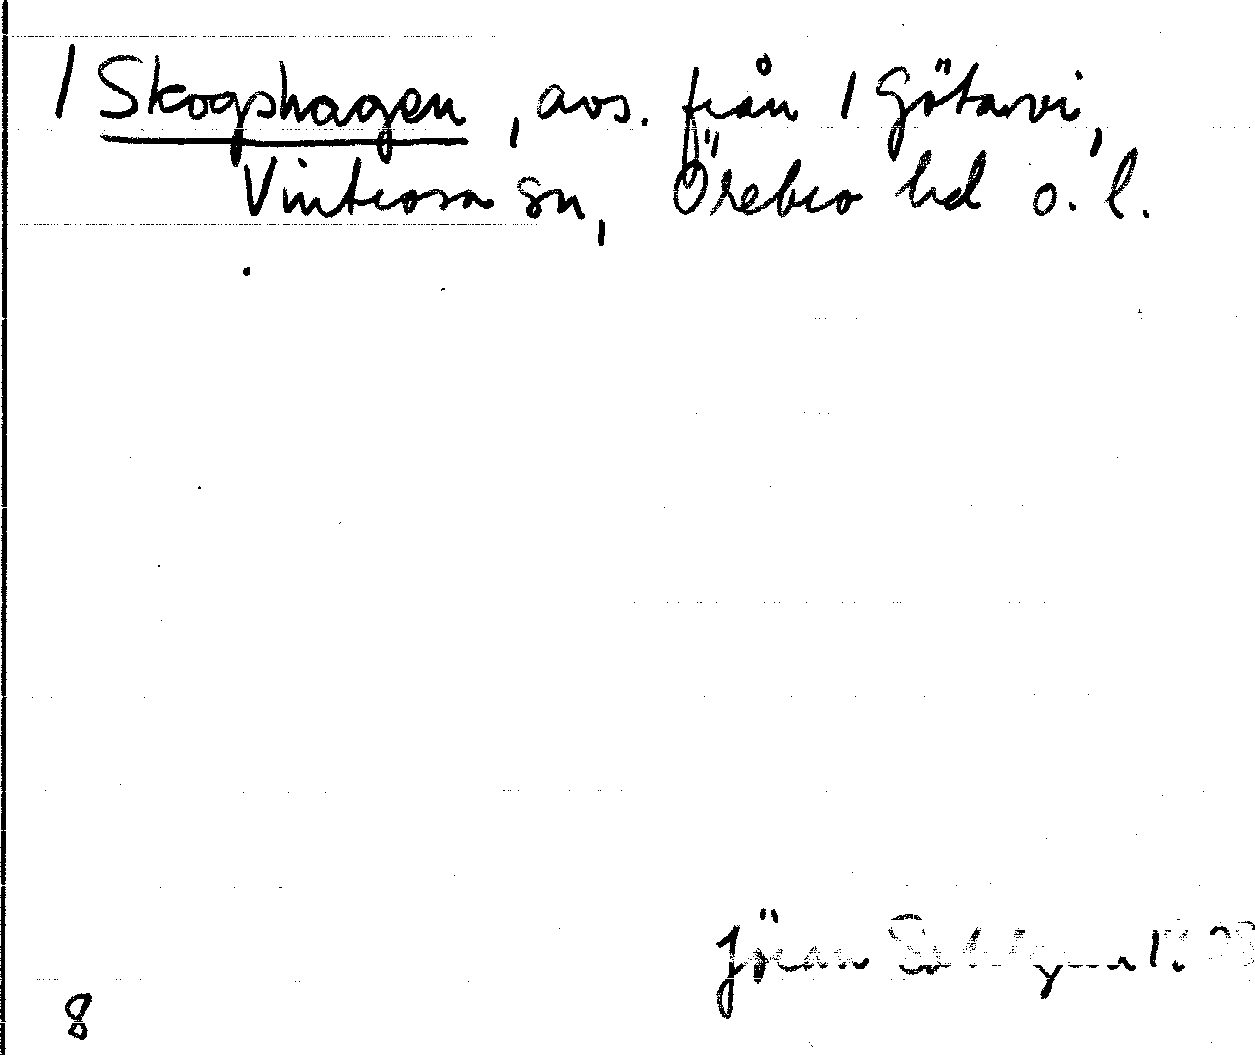 1 Skogshagen, avs. från 1 Götarvi,
Vintrosa sn, Örebro hd o. l.
Jöran
8